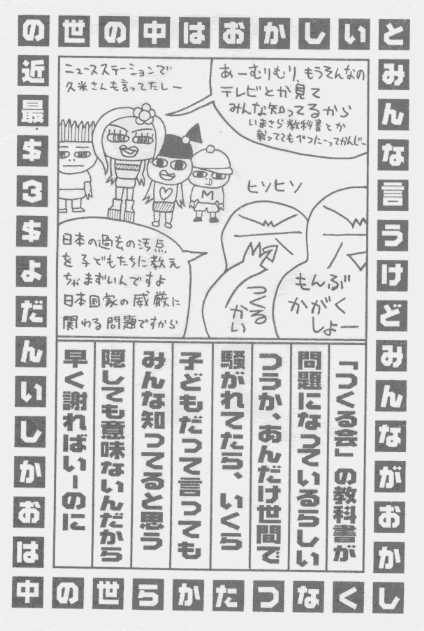 の世の中はおかしいと
みんな言うけどみんながおかし
くなつたから世の中
はおかしいんだよ$3$最近
あーむりむり、もうそんなの
テレビとか見て
みんな知ってるから
いまさら教科書とか
載っててもべつたーってかんじー
ニュースステーションで
久米さんも言ってたしー
M
ヒソヒソ
もんぶ
かがく
しょー
つくる
かい
日本の過去の汚点
を子どもたちに教え
ちゃまずいんですよ
日本国家の威厳に
関わる問題ですから
「つくる会」の教科書が
問題になっているらしい
つうか、あんだけ世間で
騒がれてたら、いくら
子どもだって言っても
みんな知ってると思う
隠しても意味ないんだから
早く謝ればいーのに